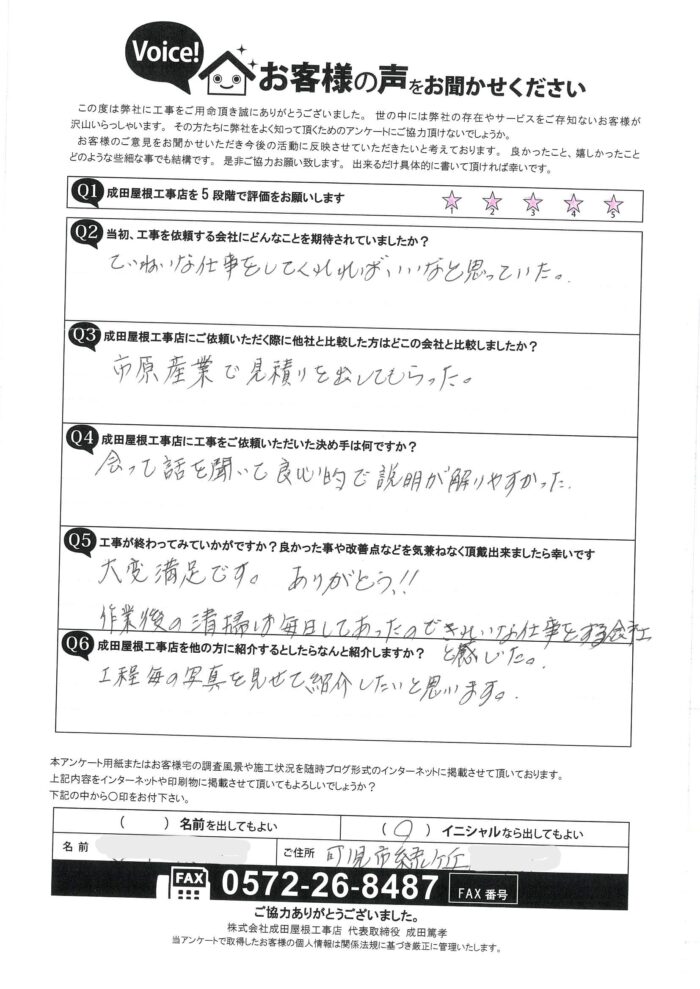 Voice!
お客様の声をお聞かせください
この度は弊社に工事をご用命頂き誠にありがとうございました。 世の中には弊社の存在やサービスをご存知ないお客様が
沢山いらっしゃいます。 その方たちに弊社をよく知って頂くためのアンケートにご協力頂けないでしょうか。
お客様のご意見をお聞かせいただき今後の活動に反映させていただきたいと考えております。 良かったこと、嬉しかったこと
どのような些細な事でも結構です。 是非ご協力お願い致します。 出来るだけ具体的に書いて頂ければ幸いです。
Q1 成田屋根工事店を5段階で評価をお願いします
1 2 3 4 5
Q2 当初、工事を依頼する会社にどんなことを期待されていましたか？
ていねいな仕事をしてくれれば、いいなと思っていた。
Q3 成田屋根工事店にご依頼いただく際に他社と比較した方はどこの会社と比較しましたか？
市原産業で見積りを出してもらった。
Q4 成田屋根工事店に工事をご依頼いただいた決め手は何ですか？
会って話を聞いて良心的で説明が解りやすかった.
Q5 工事が終わってみていかがですか？良かった事や改善点などを気兼ねなく頂戴出来ましたら幸いです
大変満足です。 ありがとう!!
作業後の清掃は毎日してあったのできれいな仕事をする会社
と感じた。
Q6 成田屋根工事店を他の方に紹介するとしたらなんと紹介しますか？
工程毎の写真を見せて紹介したいと思います。
本アンケート用紙またはお客様宅の調査風景や施工状況を随時ブログ形式のインターネットに掲載させて頂いております。
上記内容をインターネットや印刷物に掲載させて頂いてもよろしいでしょうか？
下記の中から〇印をお付下さい。
( ) 名前を出してもよい ( ○ ) イニシャルなら出してもよい
名前 ご住所 可児市緑ヶ丘
FAX 0572-26-8487 FAX番号
ご協力ありがとうございました。
株式会社成田屋根工事店 代表取締役 成田篤孝
当アンケートで取得したお客様の個人情報は関係法規に基づき厳正に管理いたします。